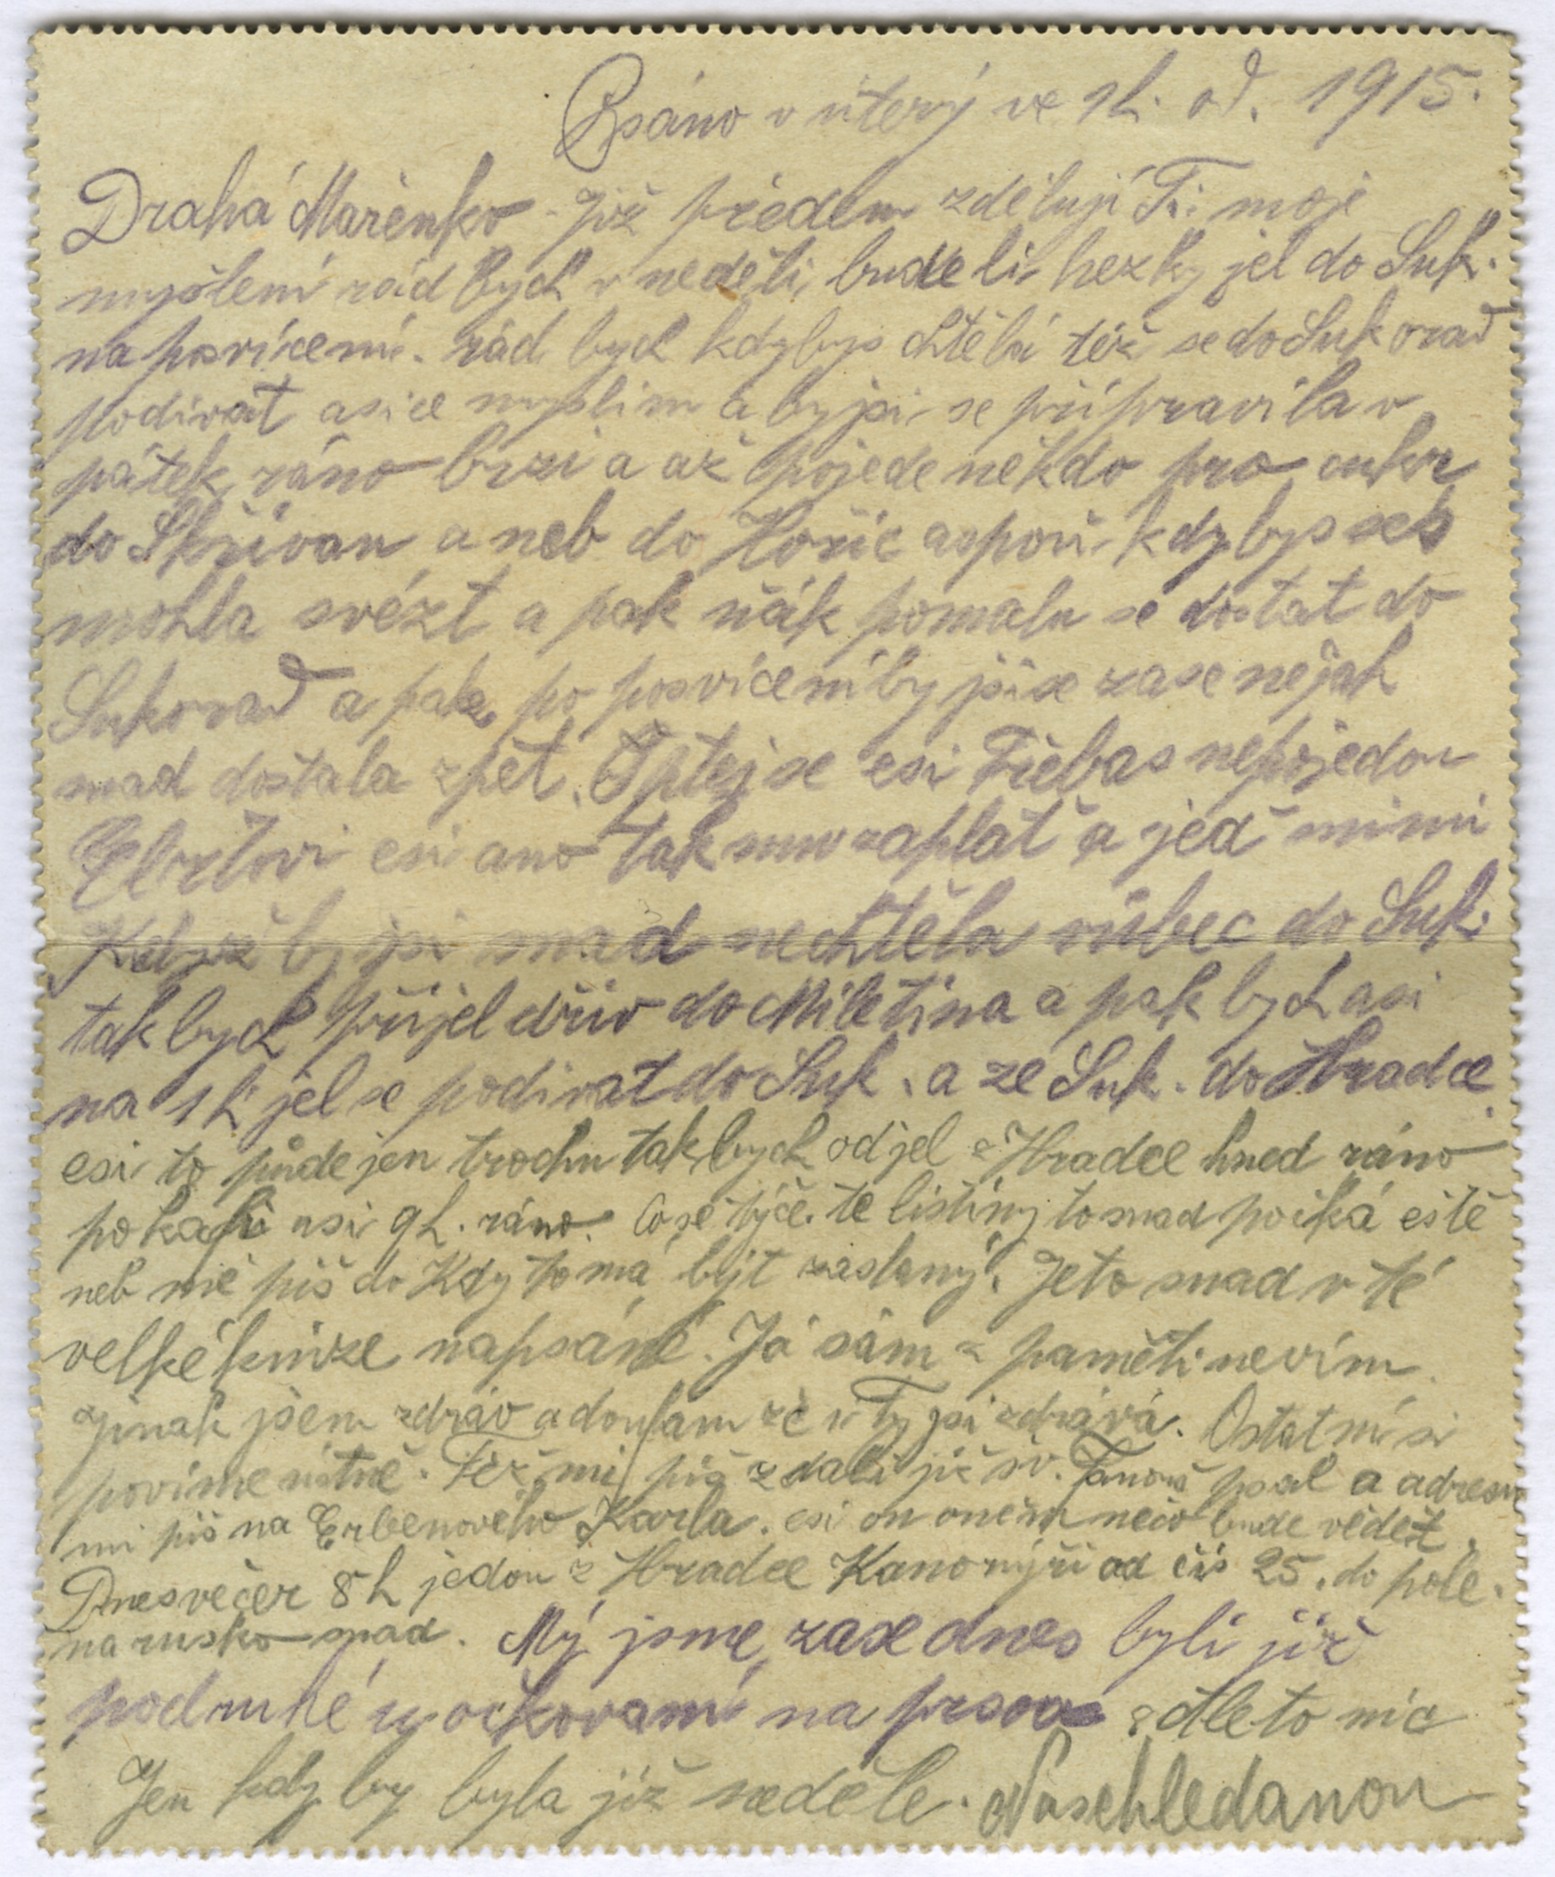 Psáno v úterý ve 1h. od. 1915.
Drahá Mařenko. Již předem zděluji Ti moje
myšlení rád bych v neděli, bude li hezky jel do Suk.
na posvícení. rád bych kdybys chtěla též se do Sukorad
podívat a sice myslim aby jsi se připravila v
pátek ráno brzi a až pojede někdo pro cukr
do Skřivan a neb do Hořic aspoň kdybys ses
mohla svézt a pak ňák pomalu se dostat do
Sukorad a pak po posvícení by jsi se zase nejak
snad dostala zpět. Optej se esi Třebas nepojedou
esi ano tak mu zaplať a jeď snimi
Když by jsi snad nechtěla vůbec do Suk.
tak bych přijel dřiv do Miletina a pak bych asi
na 1h jel se podivat do Suk. a ze Suk. do Hradce.
esi to půde jen trochu tak bych odjel z Hradce hned ráno
po kafi asi 9h. ráno. Co se týče. te listiny to snad počká eště
neb mě piš do Kdy to má být zaslaný. Je to snad v té
velké knize napsáné. Já sám z paměti nevím.
Jinak jsem zdráv a doufam že i Ty jsi zdráva. Ostatní si
povíme ústně. Též mi piš zdali již šv. Janouš psal a adresu
mi piš na Erbenového Karla. esi on oněm něco bude vědět.
Dnes večer 8h jedou z Hradce Kanonýři od čís 25. do pole.
na rusko snad. Mý jsme zase dnes byli již
podruhé u očkovaní na prsou ale to nic
Jen kdy by byla již neděle. Naschledanou